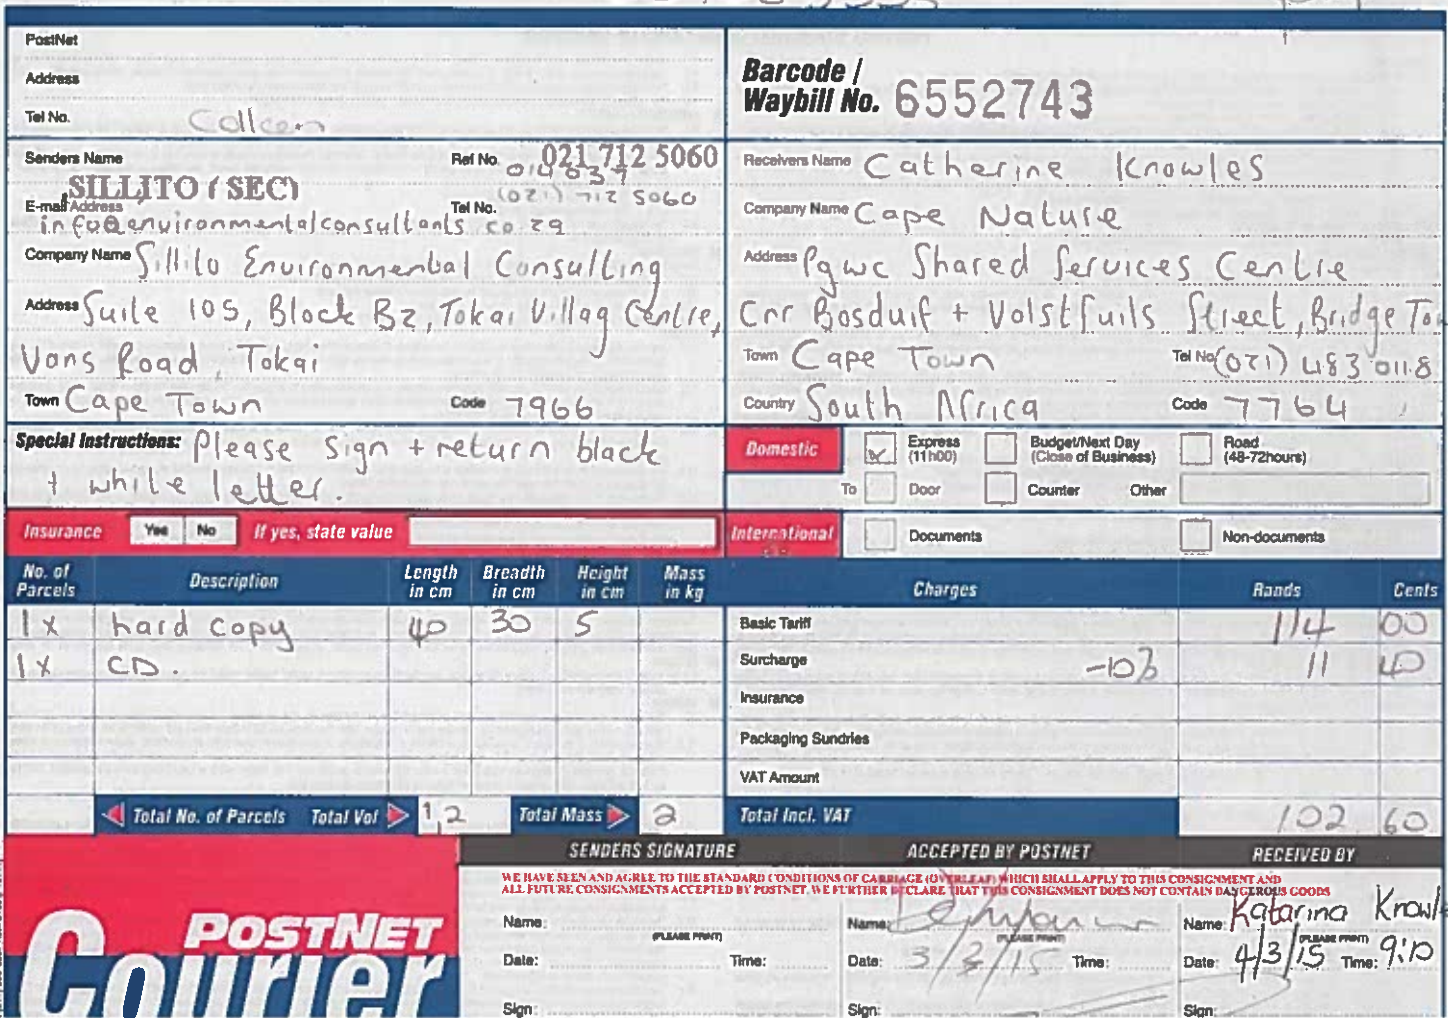 PostNet
Address
Tel No. Colleen
Barcode /
Waybill No. 6552743
Senders Name SILLITO (SEC)
Ref No. 021 712 5060
014637
E-mail Address info@environmentalconsultants.co.za
Tel No. (021) 712 5060
Company Name Sillito Environmental Consulting
Address Suite 105, Block B2, Tokai Villag Centre,
Vans Road, Tokai
Town Cape Town Code 7966
Receivers Name Catherine Knowles
Company Name Cape Nature
Address Pgwc Shared Services Centre
Cnr Bosduif + Volstruis Street, Bridge Tow
Town Cape Town Tel No (021) 483 0118
Country South Africa Code 7764
Special Instructions: Please sign + return black
+ white letter.
Domestic Express (11h00) Budget/Next Day (Close of Business) Road (48-72hours)
To Door Counter Other
Insurance Yes No If yes, state value
International Documents Non-documents
No. of Parcels Description Length in cm Breadth in cm Height in cm Mass in kg
1x hard copy 40 30 5
1x CD.
Total No. of Parcels Total Vol 1,2 Total Mass 2
Charges Rands Cents
Basic Tariff 114 00
Surcharge -10% 11 40
Insurance
Packaging Sundries
VAT Amount
Total Incl. VAT 102 60
SENDERS SIGNATURE ACCEPTED BY POSTNET RECEIVED BY
WE HAVE SEEN AND AGREE TO THE STANDARD CONDITIONS OF CARRIAGE (OVERLEAF) WHICH SHALL APPLY TO THIS CONSIGNMENT AND
ALL FUTURE CONSIGNMENTS ACCEPTED BY POSTNET. WE FURTHER DECLARE THAT THIS CONSIGNMENT DOES NOT CONTAIN DANGEROUS GOODS
POSTNET
Courier
Name: (PLEASE PRINT)
Date: Time:
Sign:
Name: (PLEASE PRINT)
Date: 3/3/15 Time:
Sign:
Name: Katarina Knowle (PLEASE PRINT)
Date: 4/3/15 Time: 9:10
Sign: